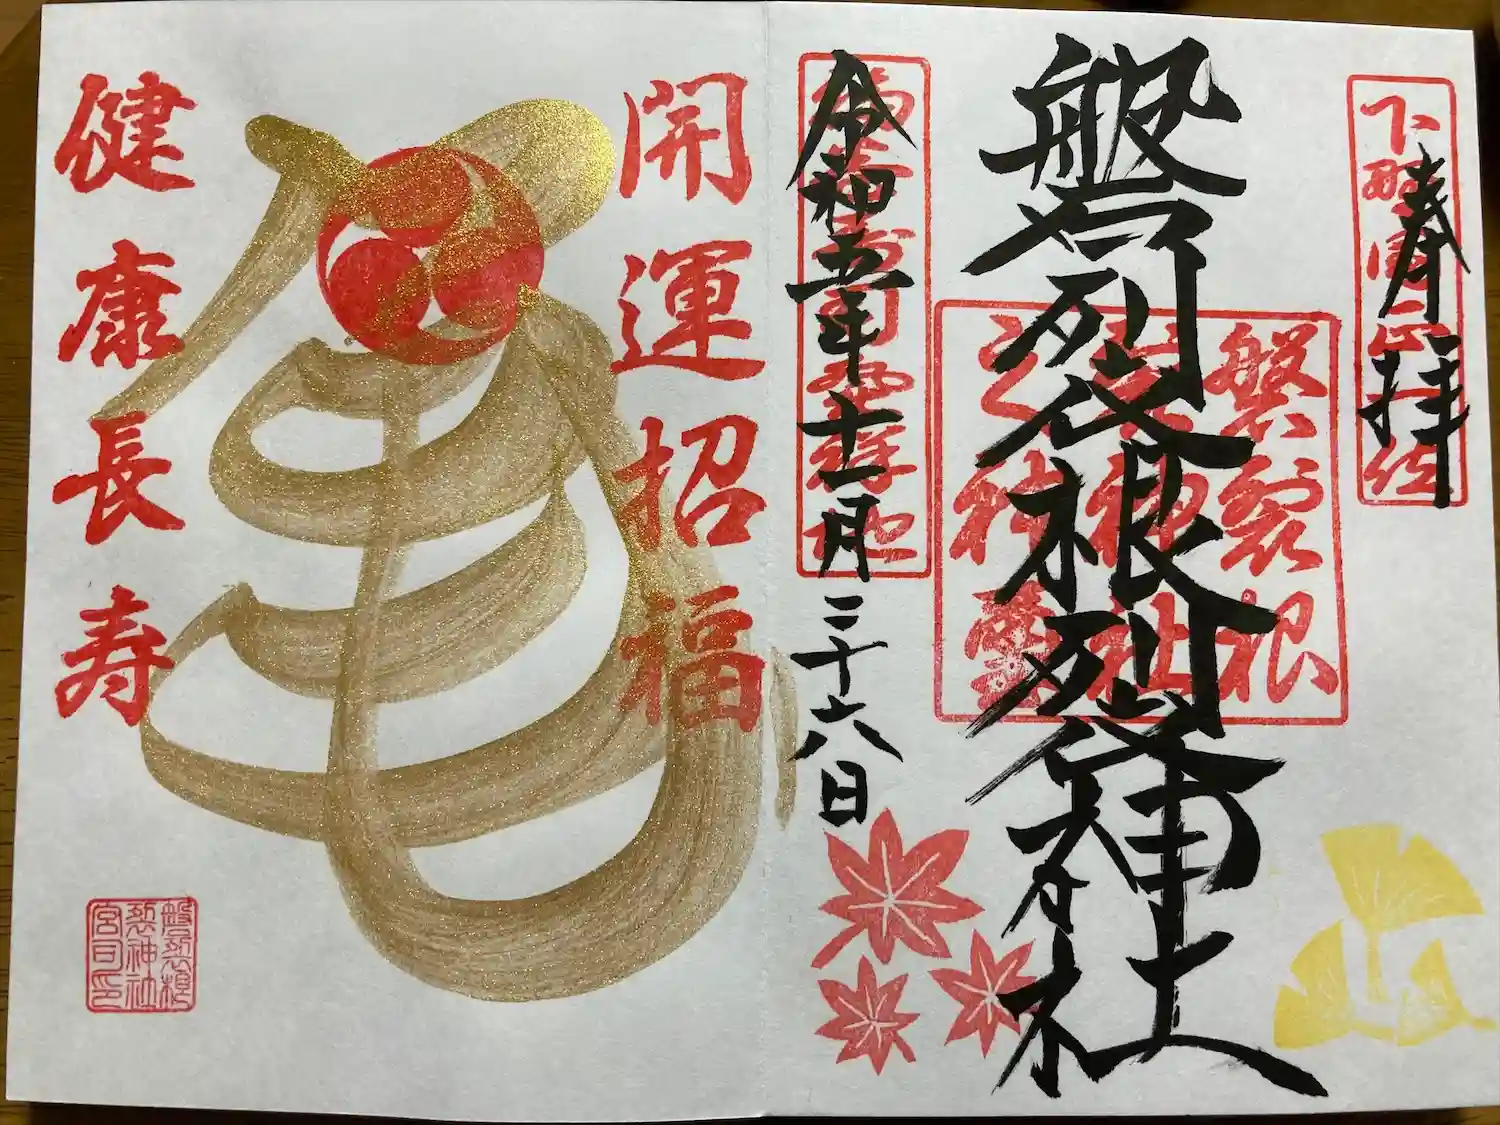 奉拝
下野國正一位
磐裂根裂神社
磐裂根
裂神社
之神璽
令和五年十一月二十六日
開運招福
亀
健康長寿
磐裂根
裂神社
宮司印